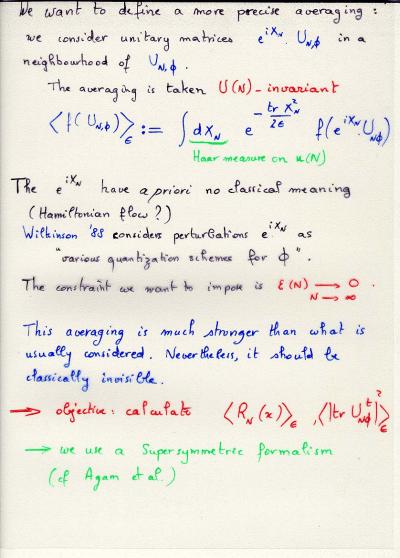 We want to define a more precise averaging :
we consider unitary matrices e^{iX_N} U_{N,ϕ} in a
neighbourhood of U_{N,ϕ}.
The averaging is taken U(N)-invariant
⟨f(U_{N,ϕ})⟩_ε := ∫dX_N e^{-tr X_N^2/2ε} f(e^{iX_N}.U_{Nϕ})
Haar measure on u(N)
The e^{iX_N} have a priori no classical meaning
(Hamiltonian flow ?)
Wilkinson '88 considers perturbations e^{iX_N} as
"various quantization schemes for ϕ".
The constraint we want to impose is ε(N) → 0 .
N → ∞
This averaging is much stronger than what is
usually considered. Nevertheless, it should be
classically invisible.
→ objective : calculate ⟨R_N(x)⟩_ε , ⟨|tr U_{Nϕ}^t|^2⟩_ε
→ we use a Supersymmetric formalism
(cf Agam et al.)